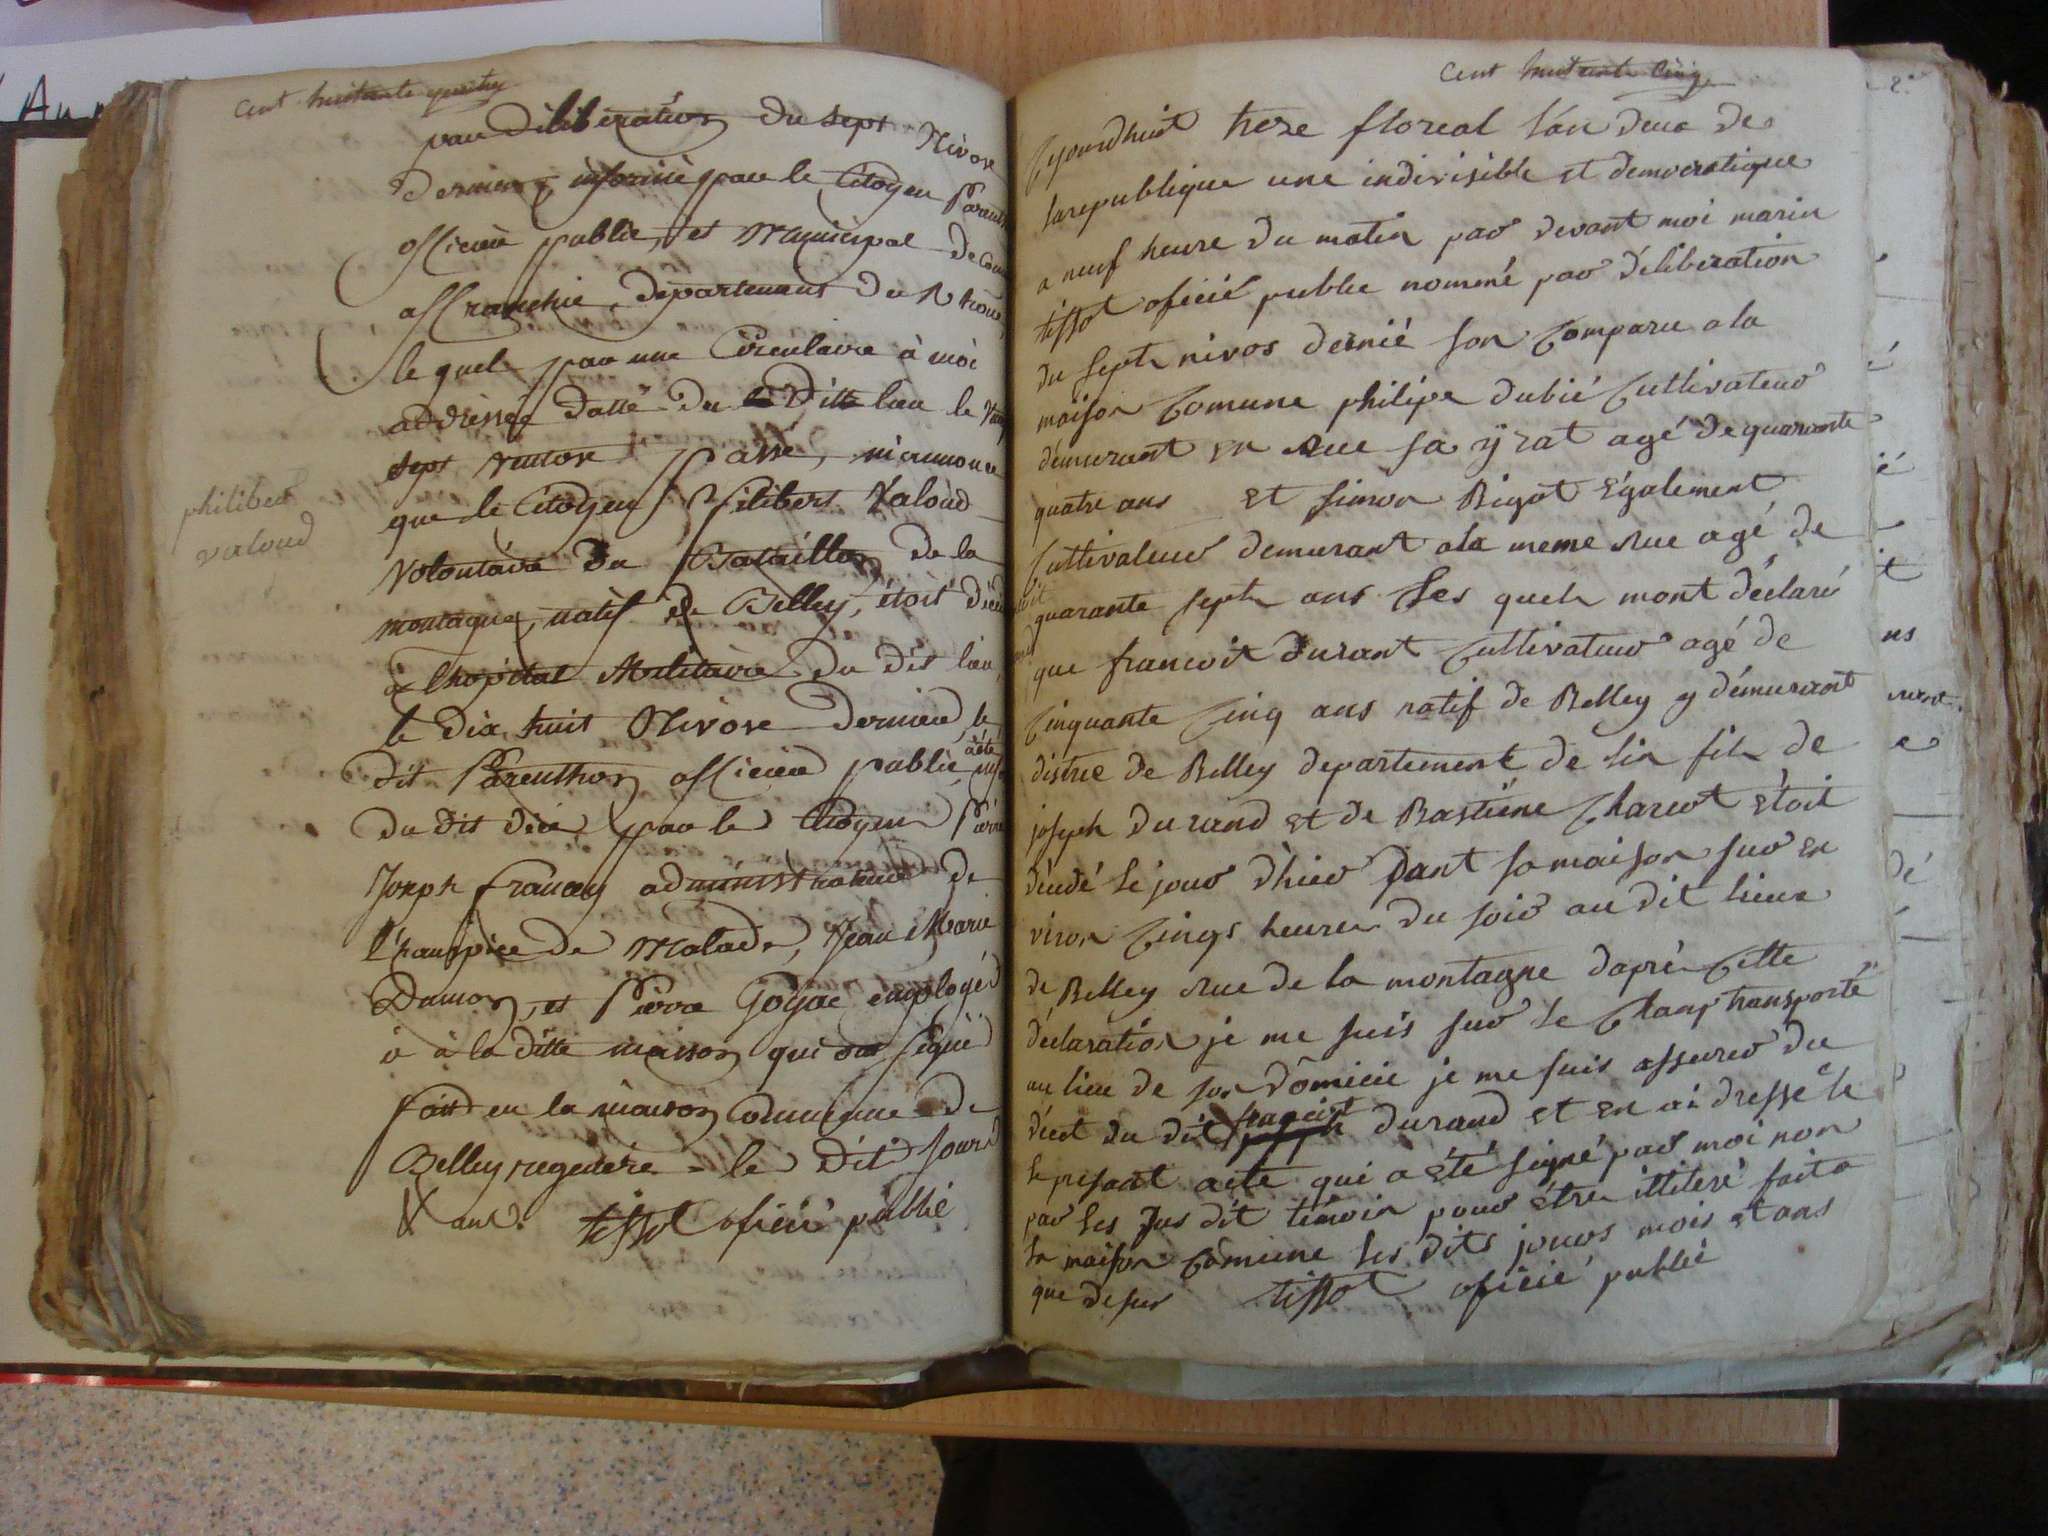 cent huitante quatre
par délibération du sept Nivose
dernier, informé par le Citoyen
officier public, et Municipal de
affranchie, departement du Rhône,
le quel par une Circulaire à moi
addressée datté du Ditte lieu le
sept ventose passé, m'annonce
que le Citoyen Filibert Valoud
Volontaire du Bataillon de la
montagne, natif de Belley, étoit
à l'hopital Militaire du dit lieu,
le dix huit Nivose dernier, le
dit Parenthon officier public, a été
du dit décé par le Citoyen Pierre
Joseph francey administrateur de
l'hauspice de Malade, Jean Marie
Dumon, et Pierre Gojac employéd
à à la ditte maison qui ont signé
fait en la maison Commune de
Belley regeneré le dit jour
& an. tissot oficié publié
philiber
valoud
cent huitante cinq
Cejourdhuit treze floreal l'an deux de
la republique une indivisible et democratique
a neuf heure du matin par devant moi marin
tissot oficié public nommé par délibération
du sept nivos dernié son Comparu a la
maison Comune philipe dubié Cultivateur
démurant en rue sa ÿrat agé de quarante
quatre ans et simon Bigot également
Cultivateur demurant a la meme rue agé de
quarante sept ans Les quels mont déclaré
que francoit durant Cultivateur agé de
Cinquante Cinq ans natif de Belley y démurant
distric de Belley departement de lin fils de
joseph durand et de Bastiene Charcot étoit
décédé le jour d'hier dant sa maison sur en
viron Cinqs heures du soir au dit lieux
de Belley rue de la montagne daprè Cette
déclaration je me suis sur le Champ transporté
au lieu de son domicie je me suis assurer du
décet du dit francoit durand et en ai dressé le
le presant acte qui a été signé par moi non
par les sus dit témoin pour être illiteré fait a
la maison Comune les dits jours mois et ans
que desus tissot oficié publié